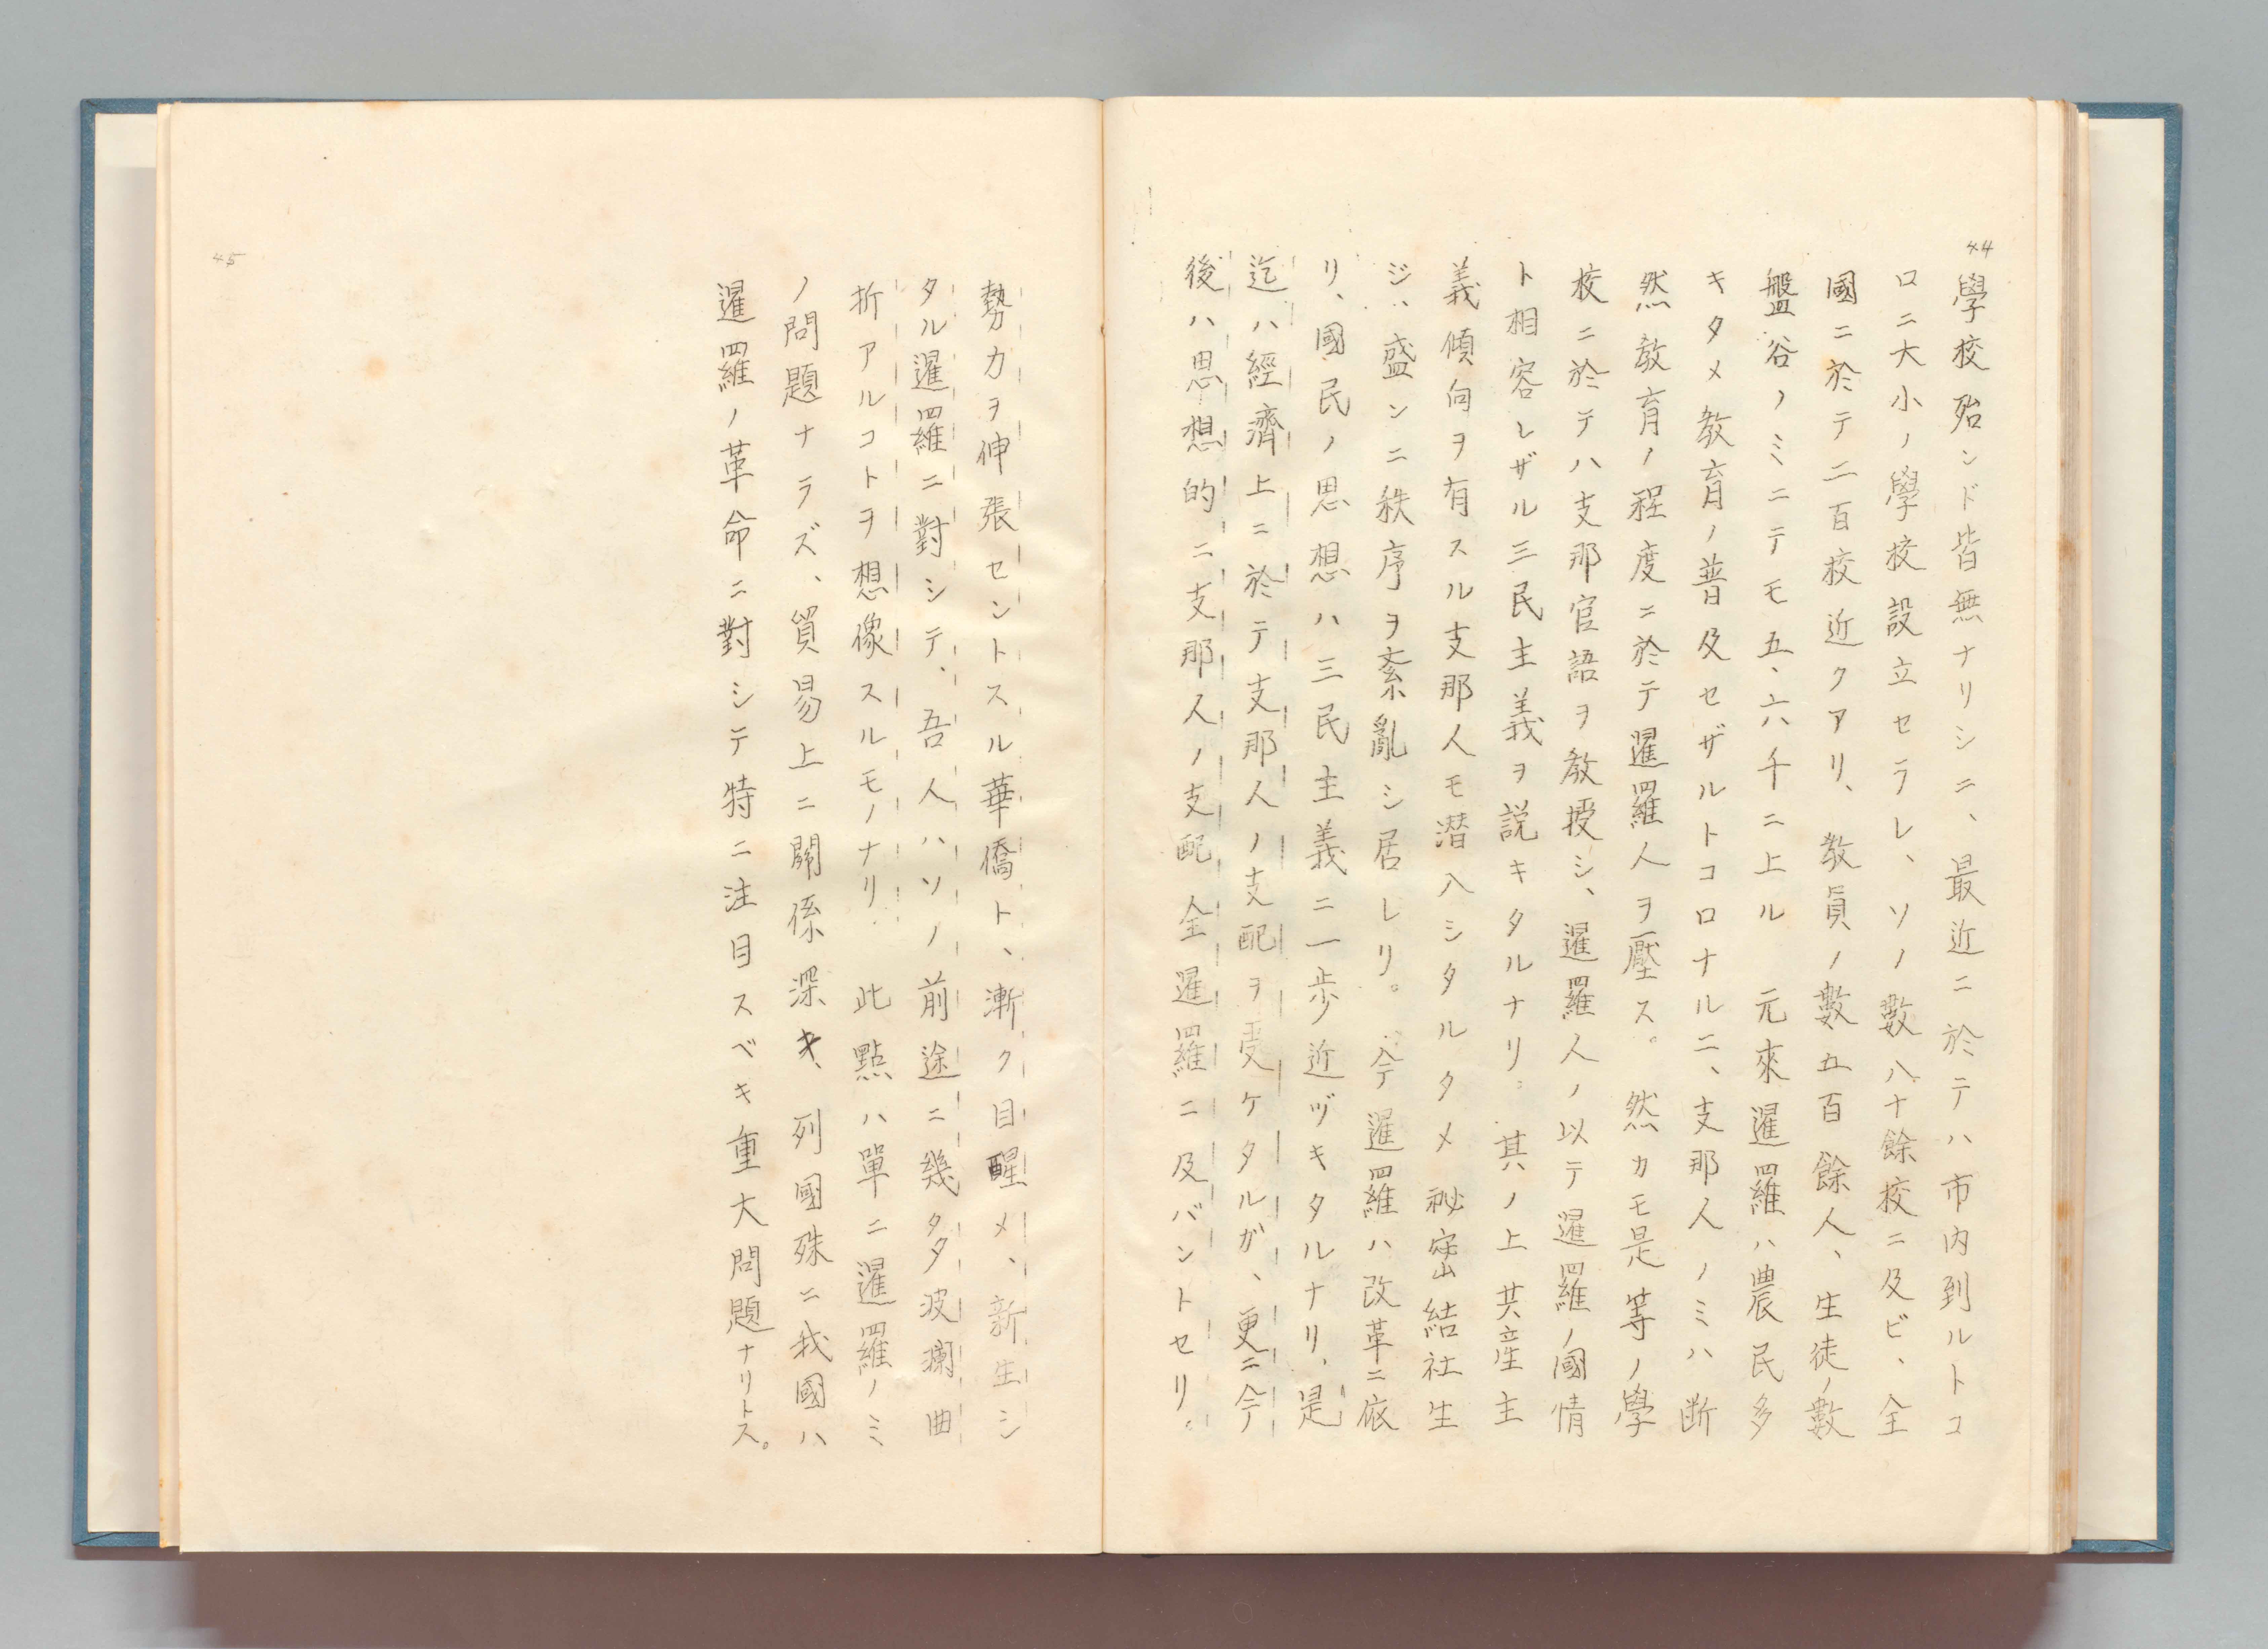 44
學校殆ンド皆無ナリシニ、最近ニ於テハ市内到ルトコ
ロニ大小ノ學校設立セラレ、ソノ數八十餘校ニ及ビ、全
國ニ於テ二百校近クアリ、教員ノ數五百餘人、生徒ノ數
盤谷ノミニテモ五、六千ニ上ル 元來暹羅ハ農民多
キタメ教育ノ普及セザルトコロナルニ、支那人ノミハ断
然教育ノ程度ニ於テ暹羅人ヲ壓ス。然カモ是等ノ學
校ニ於テハ支那官語ヲ教授シ、暹羅人ノ以テ暹羅ノ國情
ト相容レザル三民主義ヲ説キタルナリ。其ノ上共産主
義傾向ヲ有スル支那人モ潜入シタルタメ秘密結社生
ジ、盛ンニ秩序ヲ紊亂シ居レリ。今暹羅ハ改革ニ依
リ、國民ノ思想ハ三民主義ニ一歩近ヅキタルナリ、是
迄ハ經濟上ニ於テ支那人ノ支配ヲ受ケタルガ、更ニ今
後ハ思想的ニ支那人ノ支配全暹羅ニ及バントセリ。
勢力ヲ伸張セントスル華僑ト、漸ク目醒メ、新生シ
タル暹羅ニ對シテ、吾人ハソノ前途ニ幾多タ波瀾曲
折アルコトヲ想像スルモノナリ、此點ハ單ニ暹羅ノミ
ノ問題ナラズ、貿易上ニ關係深キ、列國殊ニ我國ハ
暹羅ノ革命ニ對シテ特ニ注目スベキ重大問題ナリトス。
45